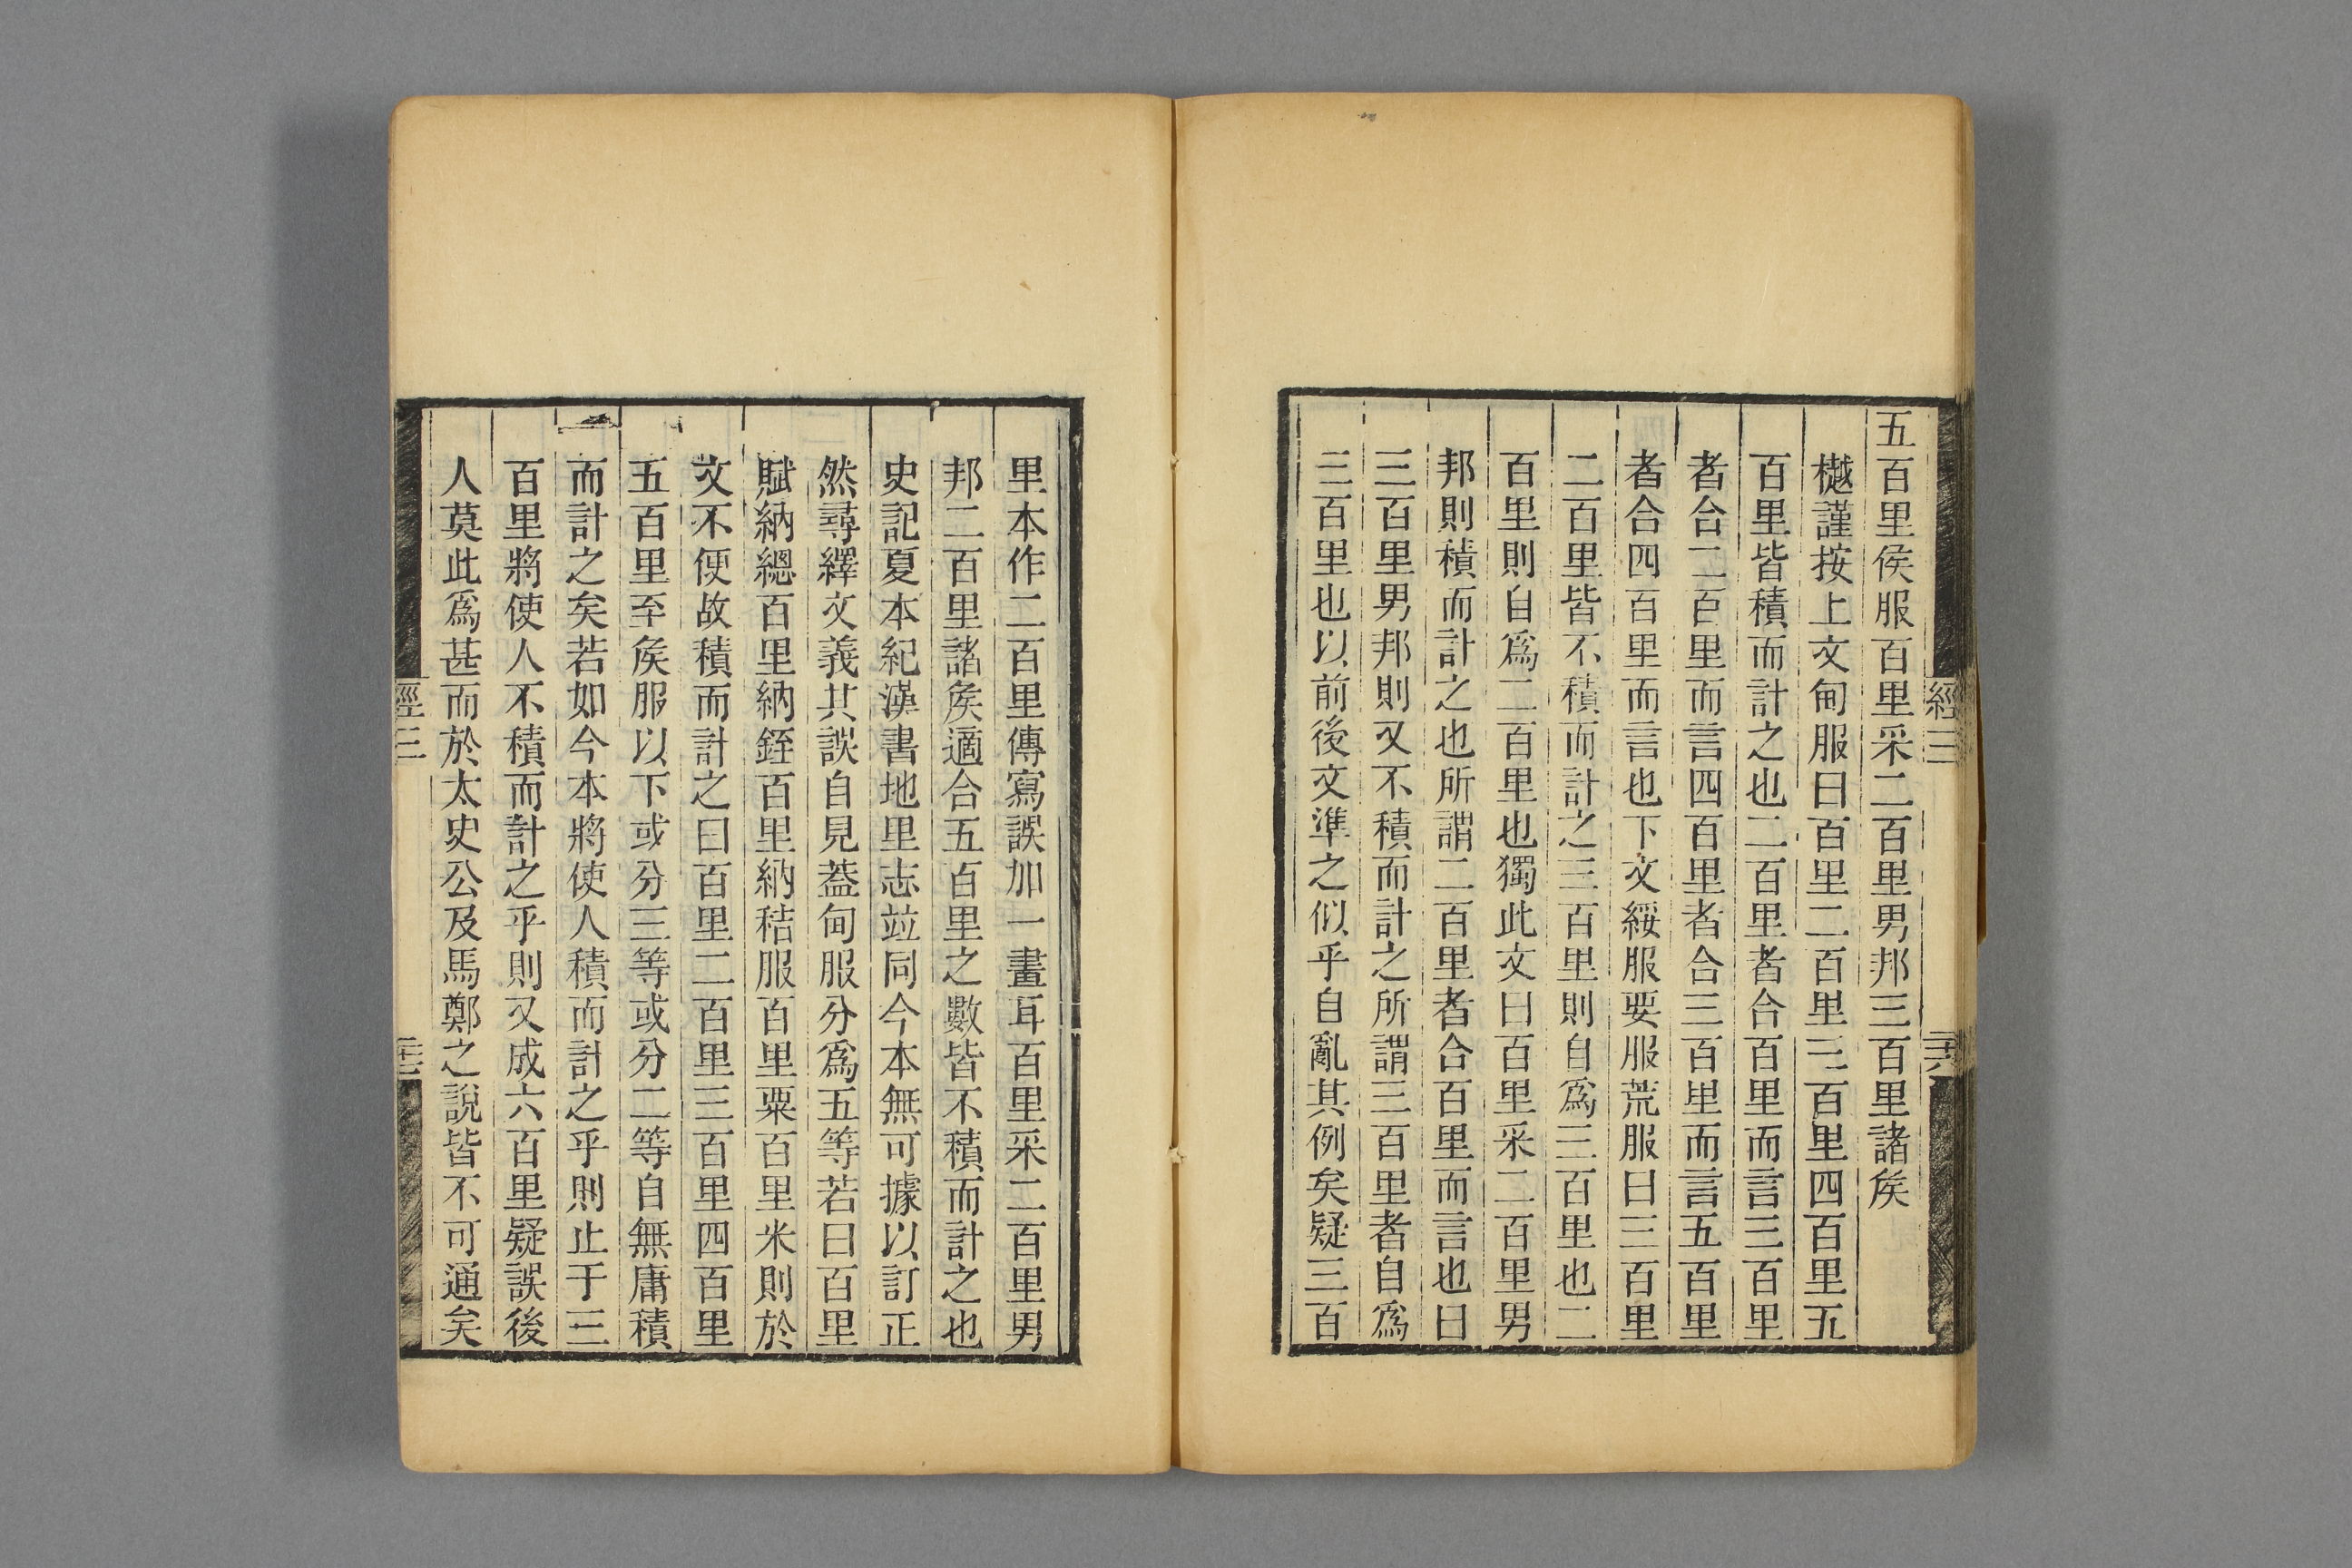 五百里侯服百里采二百里男邦三百里諸矦
樾謹按上文甸服曰百里二百里三百里四百里五
百里皆積而計之也二百里者合百里而言三百里
者合二百里而言四百里者合三百里而言五百里
者合四百里而言也下文綏服要服荒服曰三百里
二百里皆不積而計之三百里則自爲三百里也二
百里則自爲二百里也獨此文曰百里采二百里男
邦則積而計之也所謂二百里者合百里而言也曰
三百里男邦則又不積而計之所謂三百里者自爲
三百里也以前後文準之似乎自亂其例矣疑三百
經三
里本作二百里傳寫誤加一畫耳百里采二百里男
邦二百里諸矦適合五百里之數皆不積而計之也
史記夏本紀漢書地里志竝同今本無可據以訂正
然尋繹文義其誤自見葢甸服分爲五等若曰百里
賦納緫百里納銍百里納秸服百里粟百里米則於
文不便故積而計之曰百里二百里三百里四百里
五百里至矦服以下或分三等或分二等自無庸積
而計之矣若如今本將使人積而計之乎則止于三
百里將使人不積而計之乎則又成六百里疑誤後
人莫此爲甚而於太史公及馬鄭之說皆不可通矣
經三